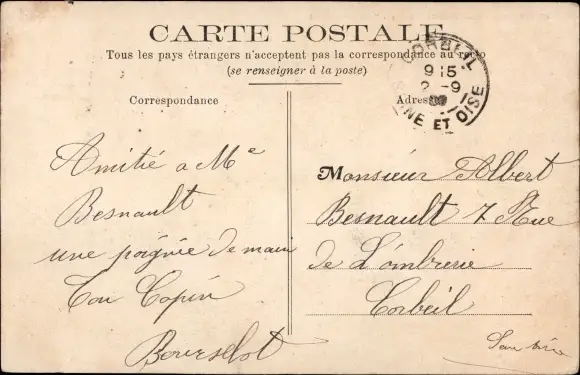 CARTE POSTALE
Tous les pays étrangers n'acceptent pas la correspondance au recto
(se renseigner à la poste)
Correspondance
Adresse
CORBEIL
9 15
2 -9
09
SEINE ET OISE
Amitié a Me
Besnault
une poignée de main
Ton Copin
Bourselot
Monsieur Albert
Besnault 7 Rue
de L'ombrerie
Corbeil